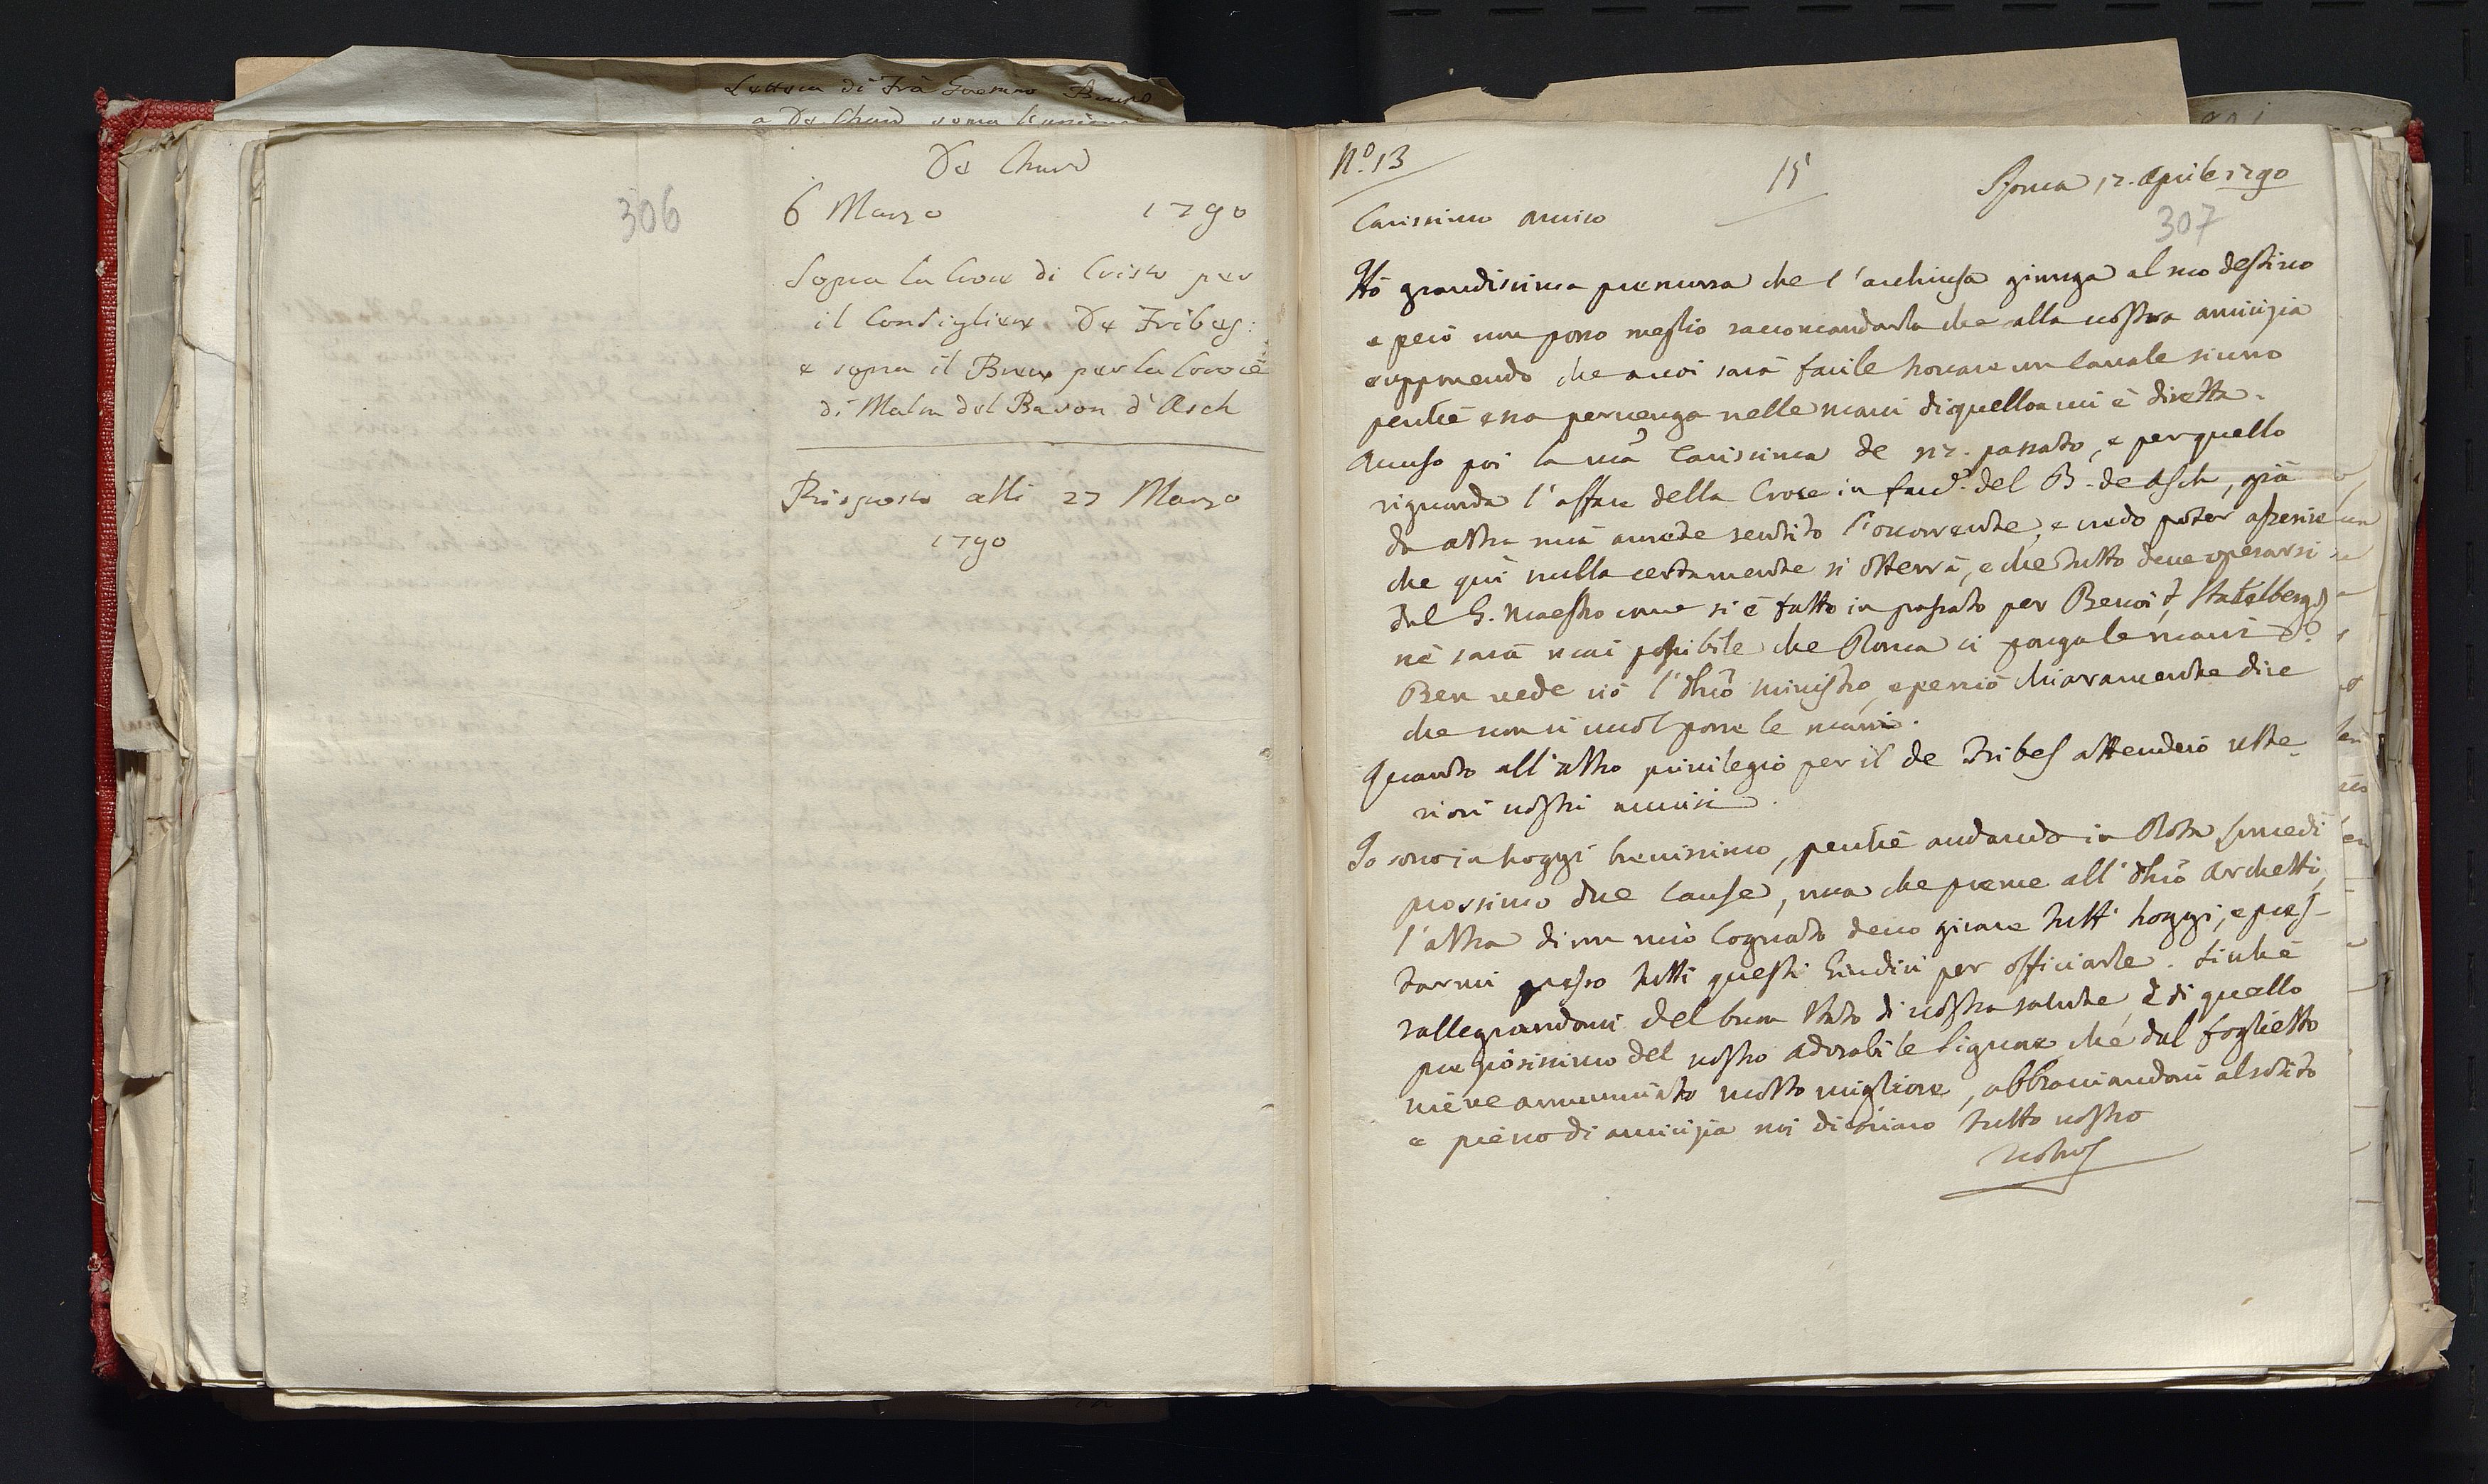 Lettera di Frà Gaetano Bruno
a De Chard sopra
De Chard
306
6 Marzo 1790
Sopra la Croce di Cristo per
il Consigliere De Tribes:
e sopra il Breve per la Croce
di Malta del Baron d'Asch
Risposto alli 27 Marzo
1790
N.o 13
15
Roma 17. Aprile 1790
307
Carissimo amico
Hò grandissima premura che l'acchiusa giunga al suo destino
e però non posso meglio raccomandarla che alla vostra amicizia
supponendo che a voi sarà facile trovare un canale sicuro
perche essa pervenga nelle mani di quello a cui è diretta.
Accuso poi la vra Carissima de passato, e per quello
riguarda l'affare della Croce in fav.e del B. de Asch, già
da altra mia avrete sentito l'occorrente, e credo poter asserire
che quì nulla certamente si otterrà, e che tutto deve operarsi
dal G. Maestro come si è fatto in passato per Benoit, Statelberg
nè sarà mai possibile che Roma ci ponga le mani
Ben vede ciò l' ministro, e perciò chiaramente dice
che non ci vuol porre le mani.
Quanto all'altro privilegio per il de Tribes attenderò ulte-
riori vostri avvisi.
Io sono in hoggi brevissimo, perche andando in Rota Lunedì
prossimo due Cause, una che preme all' Archetti,
l'altra di un mio Cognato devo girare tutt' hoggi, e pres-
tarmi presso tutti questi Giudici per officiarle. Sicchè
rallegrandomi del buon stato di vostra salute, e di quello
preziosissimo del vostro adorabile Signore che dal foglietto
viene annunciato molto migliore, abbracciandovi al solito
e pieno di amicizia mi dichiaro tutto vostro